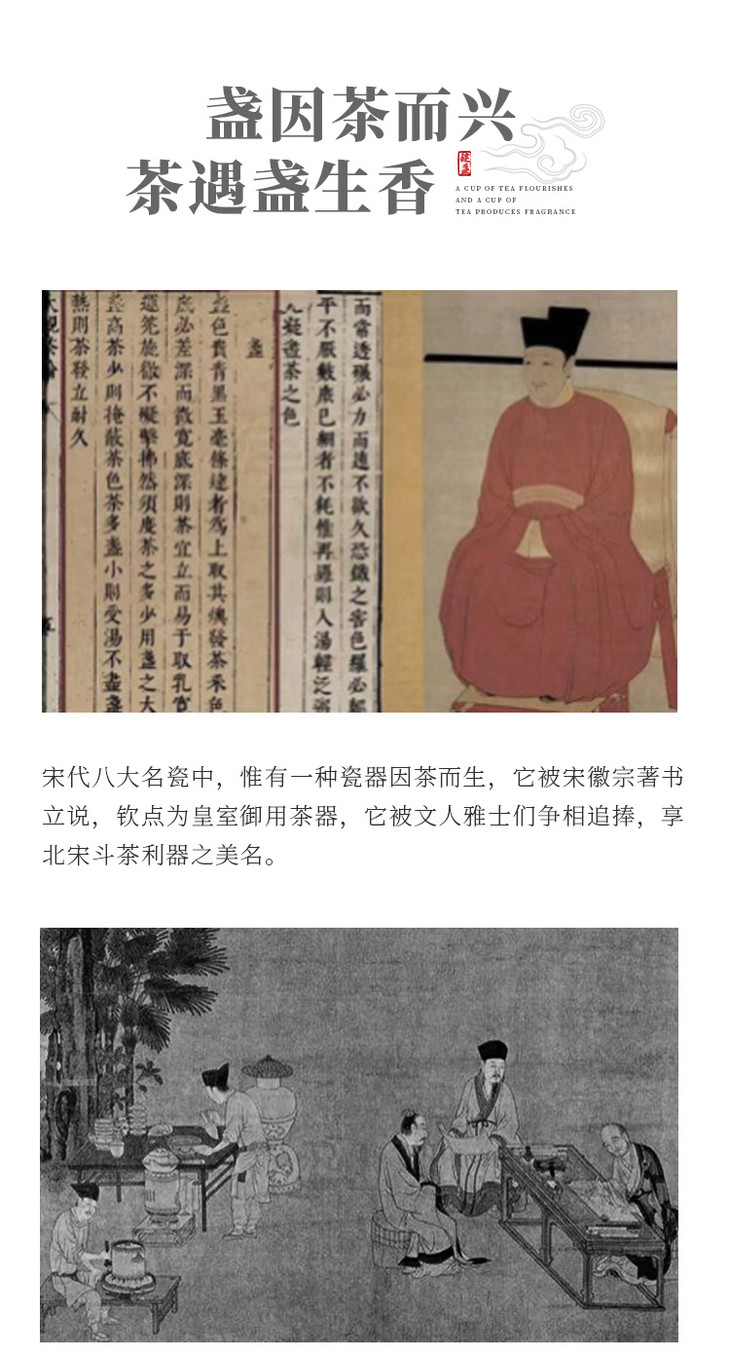 盏因茶而兴
茶遇盏生香
建盏
A CUP OF TEA FLOURISHES
AND A CUP OF
TEA PRODUCES FRAGRANCE
而常透碾必力而速不欲久恐鐵之害色羅必輕
平不厭數庶已細者不耗惟再羅則入湯輕泛
凝盡茶之色
盞
盞色貴青黑玉毫條達者為上取其燠發茶采色
底必差深而微寬底深則茶宜立而易于取乳寬
運筅旋徹不礙擊拂然須度茶之多少用盞之大
盞高茶少則掩蔽茶色茶多盞小則受湯不盡盞
熱則茶發立耐久
宋代八大名瓷中，惟有一种瓷器因茶而生，它被宋徽宗著书
立说，钦点为皇室御用茶器，它被文人雅士们争相追捧，享
北宋斗茶利器之美名。